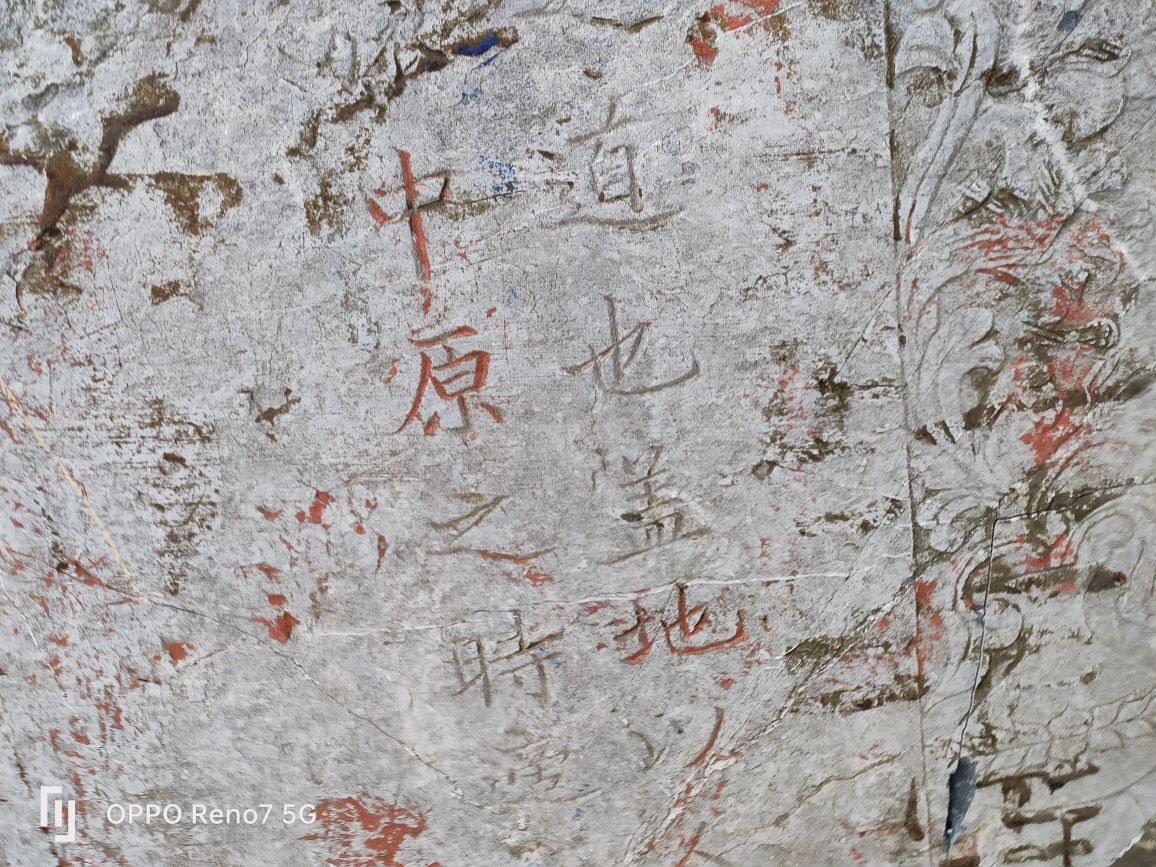 直也盖地
中原之時
OPPO Reno7 5G